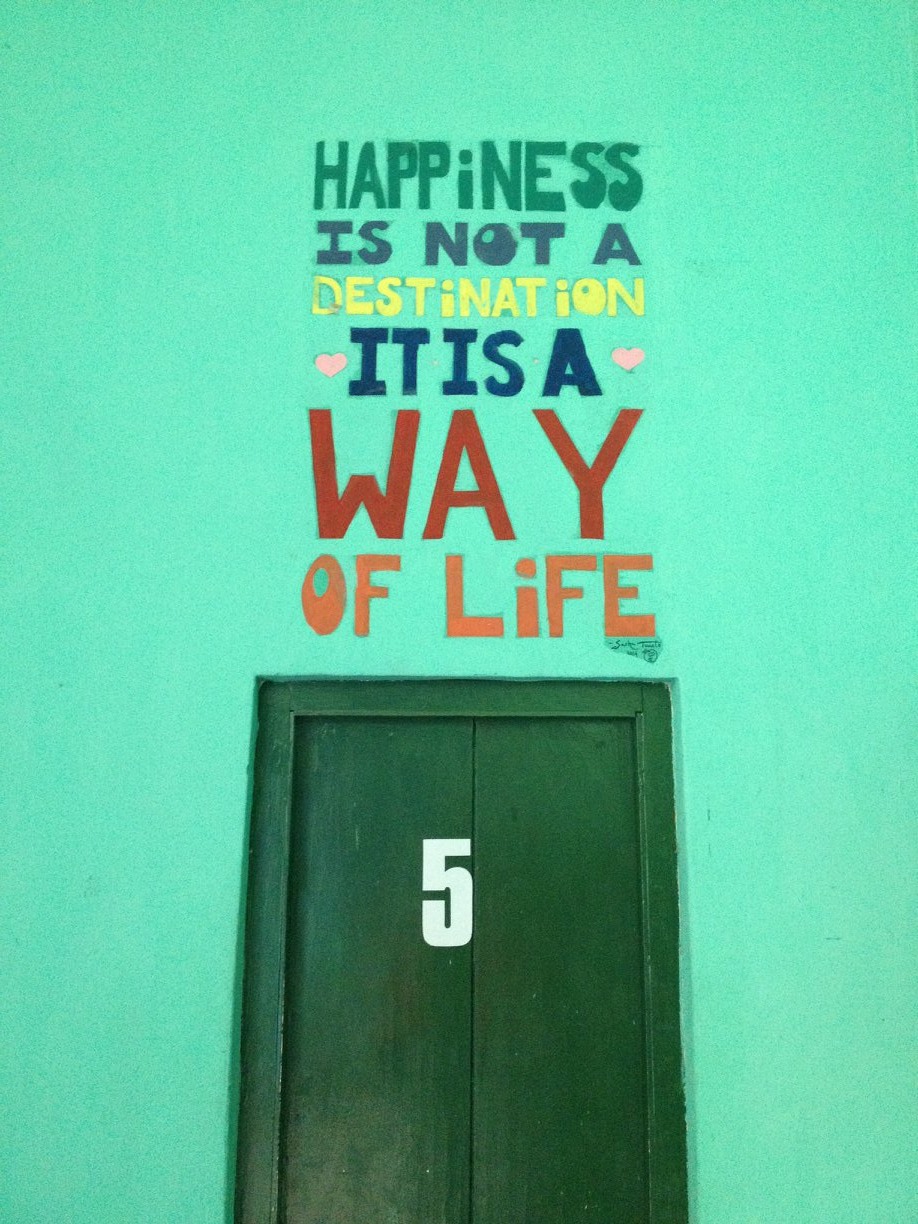 HAPPiNESS
IS NOT A
DESTiNATiON
IT IS A
WAY
OF LiFE
5